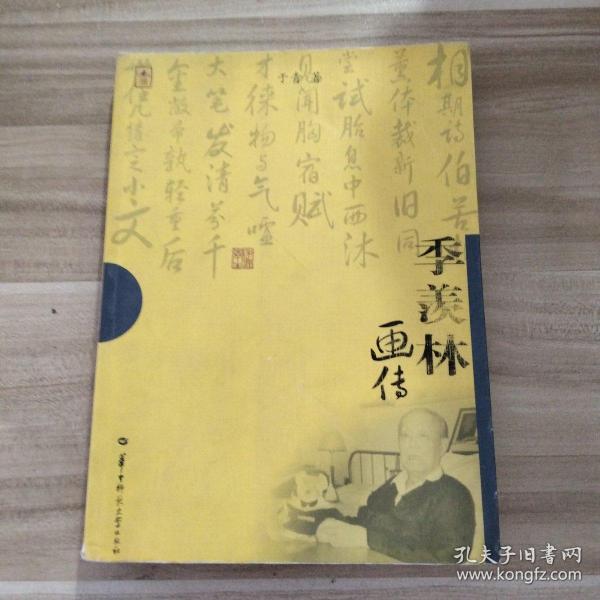 相期诗伯苦
黄体裁新旧同
尝试胎息中西沐
见闻胸宿赋
才徕物与气嘘
大笔发清芬千
金敝帚孰轻重后
世凭修之小文
于青 著
季羡林
画传
华中师范大学出版社
孔夫子旧书网
www.kongfz.com